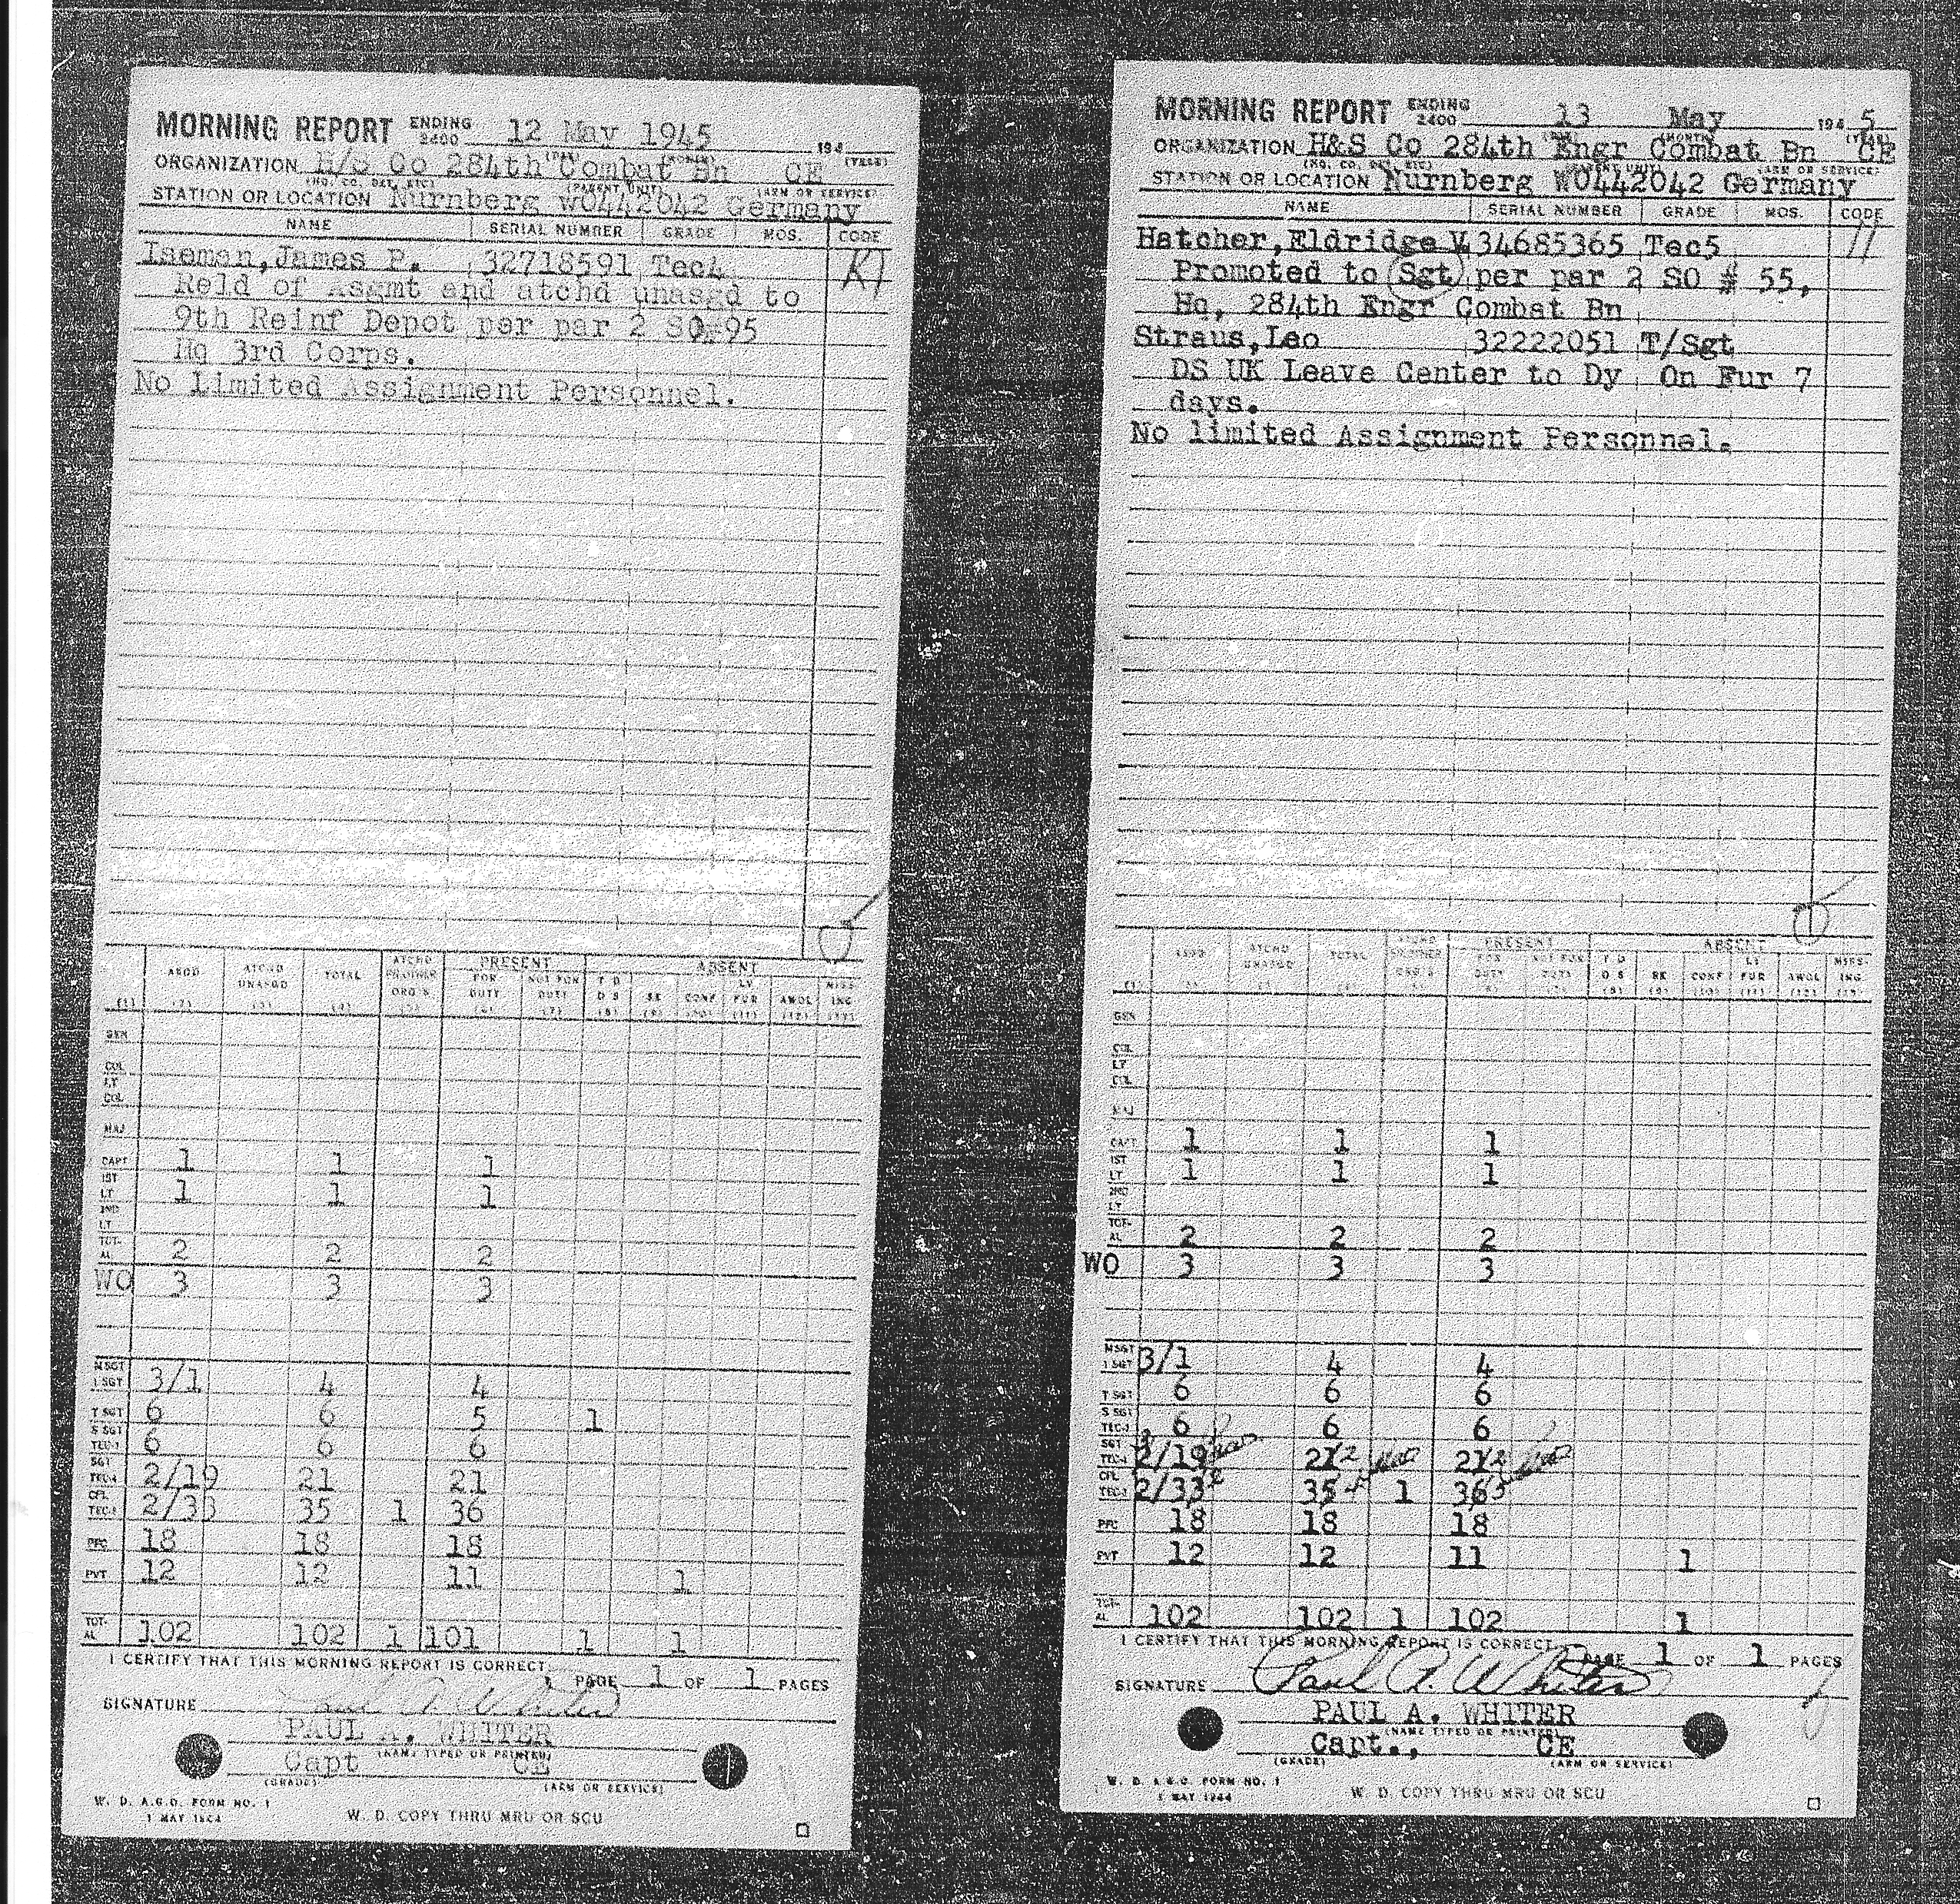 MORNING REPORT ENDING 2400 12 May 1945 194
(DAY) (MONTH) (YEAR)
ORGANIZATION H/S Co 284th Combat Bn CE
(HQ. CO. DET. ETC) (PARENT UNIT) (ARM OR SERVICE)
STATION OR LOCATION Nurnberg WO442042 Germany
NAME SERIAL NUMBER GRADE MOS. CODE
Iseman, James P. 32718591 Tec4
Reld of Asgmt and atchd unasgd to
9th Reinf Depot per par 2 SO 95
Hq 3rd Corps.
No Limited Assignment Personnel.
PRESENT ABSENT
ASGD ATCHD UNASGD TOTAL ATCHD FR OTHER ORG'S FOR DUTY NOT FOR DUTY T D D S SK CONF LV FUR AWOL MISSING
(1) (2) (3) (4) (5) (6) (7) (8) (9) (10) (11) (12) (13)
GEN
COL
LT COL
MAJ
CAPT 1 1 1
1ST LT 1 1 1
2ND LT
TOTAL 2 2 2
WO 3 3 3
MSGT 1 SGT 3/1 4 4
T SGT 6 6 5 1
S SGT TEC-3 6 6 6
SGT TEC-4 2/19 21 21
CPL TEC-5 2/33 35 1 36
PFC 18 18 18
PVT 12 12 11 1
TOTAL 102 102 1 101 1 1
I CERTIFY THAT THIS MORNING REPORT IS CORRECT.
PAGE 1 OF 1 PAGES
SIGNATURE Paul A. Whiter
PAUL A. WHITER
(NAME TYPED OR PRINTED)
Capt CE
(GRADE) (ARM OR SERVICE)
W. D. A.G.O. FORM NO. 1
1 MAY 1944
W. D. COPY THRU MRU OR SCU
MORNING REPORT ENDING 2400 13 May 194 5
(DAY) (MONTH) (YEAR)
ORGANIZATION H&S Co 284th Engr Combat Bn CE
(HQ. CO. DET. ETC) (PARENT UNIT) (ARM OR SERVICE)
STATION OR LOCATION Nurnberg WO442042 Germany
NAME SERIAL NUMBER GRADE MOS. CODE
Hatcher, Eldridge V 34685365 Tec5 11
Promoted to Sgt per par 2 SO # 55,
Hq, 284th Engr Combat Bn
Straus, Leo 32222051 T/Sgt
DS UK Leave Center to Dy On Fur 7
days.
No limited Assignment Personnel.
PRESENT ABSENT
ASGD ATCHD UNASGD TOTAL ATCHD FR OTHER ORG'S FOR DUTY NOT FOR DUTY T D D S SK CONF LV FUR AWOL MISSING
(1) (2) (3) (4) (5) (6) (7) (8) (9) (10) (11) (12) (13)
GEN
COL
LT COL
MAJ
CAPT 1 1 1
1ST LT 1 1 1
2ND LT
TOTAL 2 2 2
WO 3 3 3
MSGT 1 SGT 3/1 4 4
T SGT 6 6 6
S SGT TEC-3 6 6 6
SGT TEC-4 2/19 21 2 21 2
CPL TEC-5 2/33 2 35 4 1 36 5
PFC 18 18 18
PVT 12 12 11 1
TOTAL 102 102 1 102 1
I CERTIFY THAT THIS MORNING REPORT IS CORRECT.
PAGE 1 OF 1 PAGES
SIGNATURE Paul A. Whiter
PAUL A. WHITER
(NAME TYPED OR PRINTED)
Capt., CE
(GRADE) (ARM OR SERVICE)
W. D. A.G.O. FORM NO. 1
1 MAY 1944
W. D. COPY THRU MRU OR SCU